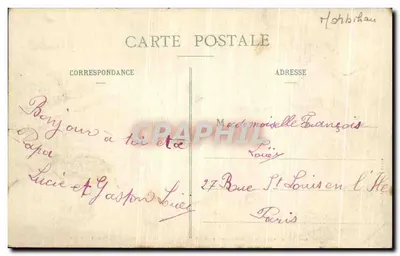 Morbihan
CARTE POSTALE
CORRESPONDANCE
ADRESSE
Bonjour à toi et à
Papa
Lucie et Gaston
Mademoiselle François
27 Rue St Louis en l'Ile
Paris
CPAPHIL